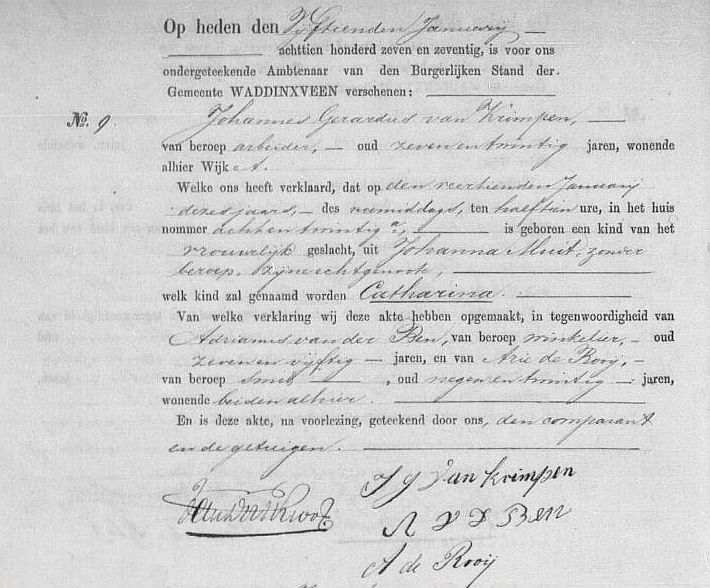 Op heden den Vijftienden Januarij
achttien honderd zeven en zeventig, is voor ons
ondergeteekende Ambtenaar van den Burgerlijken Stand der
Gemeente WADDINXVEEN verschenen:
No. 9
Johannes Gerardus van Krimpen,
van beroep arbeider, oud zeven en twintig jaren, wonende
alhier Wijk A.
Welke ons heeft verklaard, dat op den veertienden Januarij
dezes jaars, des namiddags, ten half tien ure, in het huis
nommer acht en twintig a, is geboren een kind van het
vrouwelijk geslacht, uit Johanna Muit, zonder
beroep, zijne echtgenoote,
welk kind zal genaamd worden Catharina.
Van welke verklaring wij deze akte hebben opgemaakt, in tegenwoordigheid van
Adrianus van der Ben, van beroep winkelier, oud
zeven en vijftig jaren, en van Arie de Rooij,
van beroep smid, oud negen en twintig jaren,
wonende beiden alhier.
En is deze akte, na voorlezing, geteekend door ons, den comparant
en de getuigen.
J G van Krimpen
A V D Ben
A de Rooij